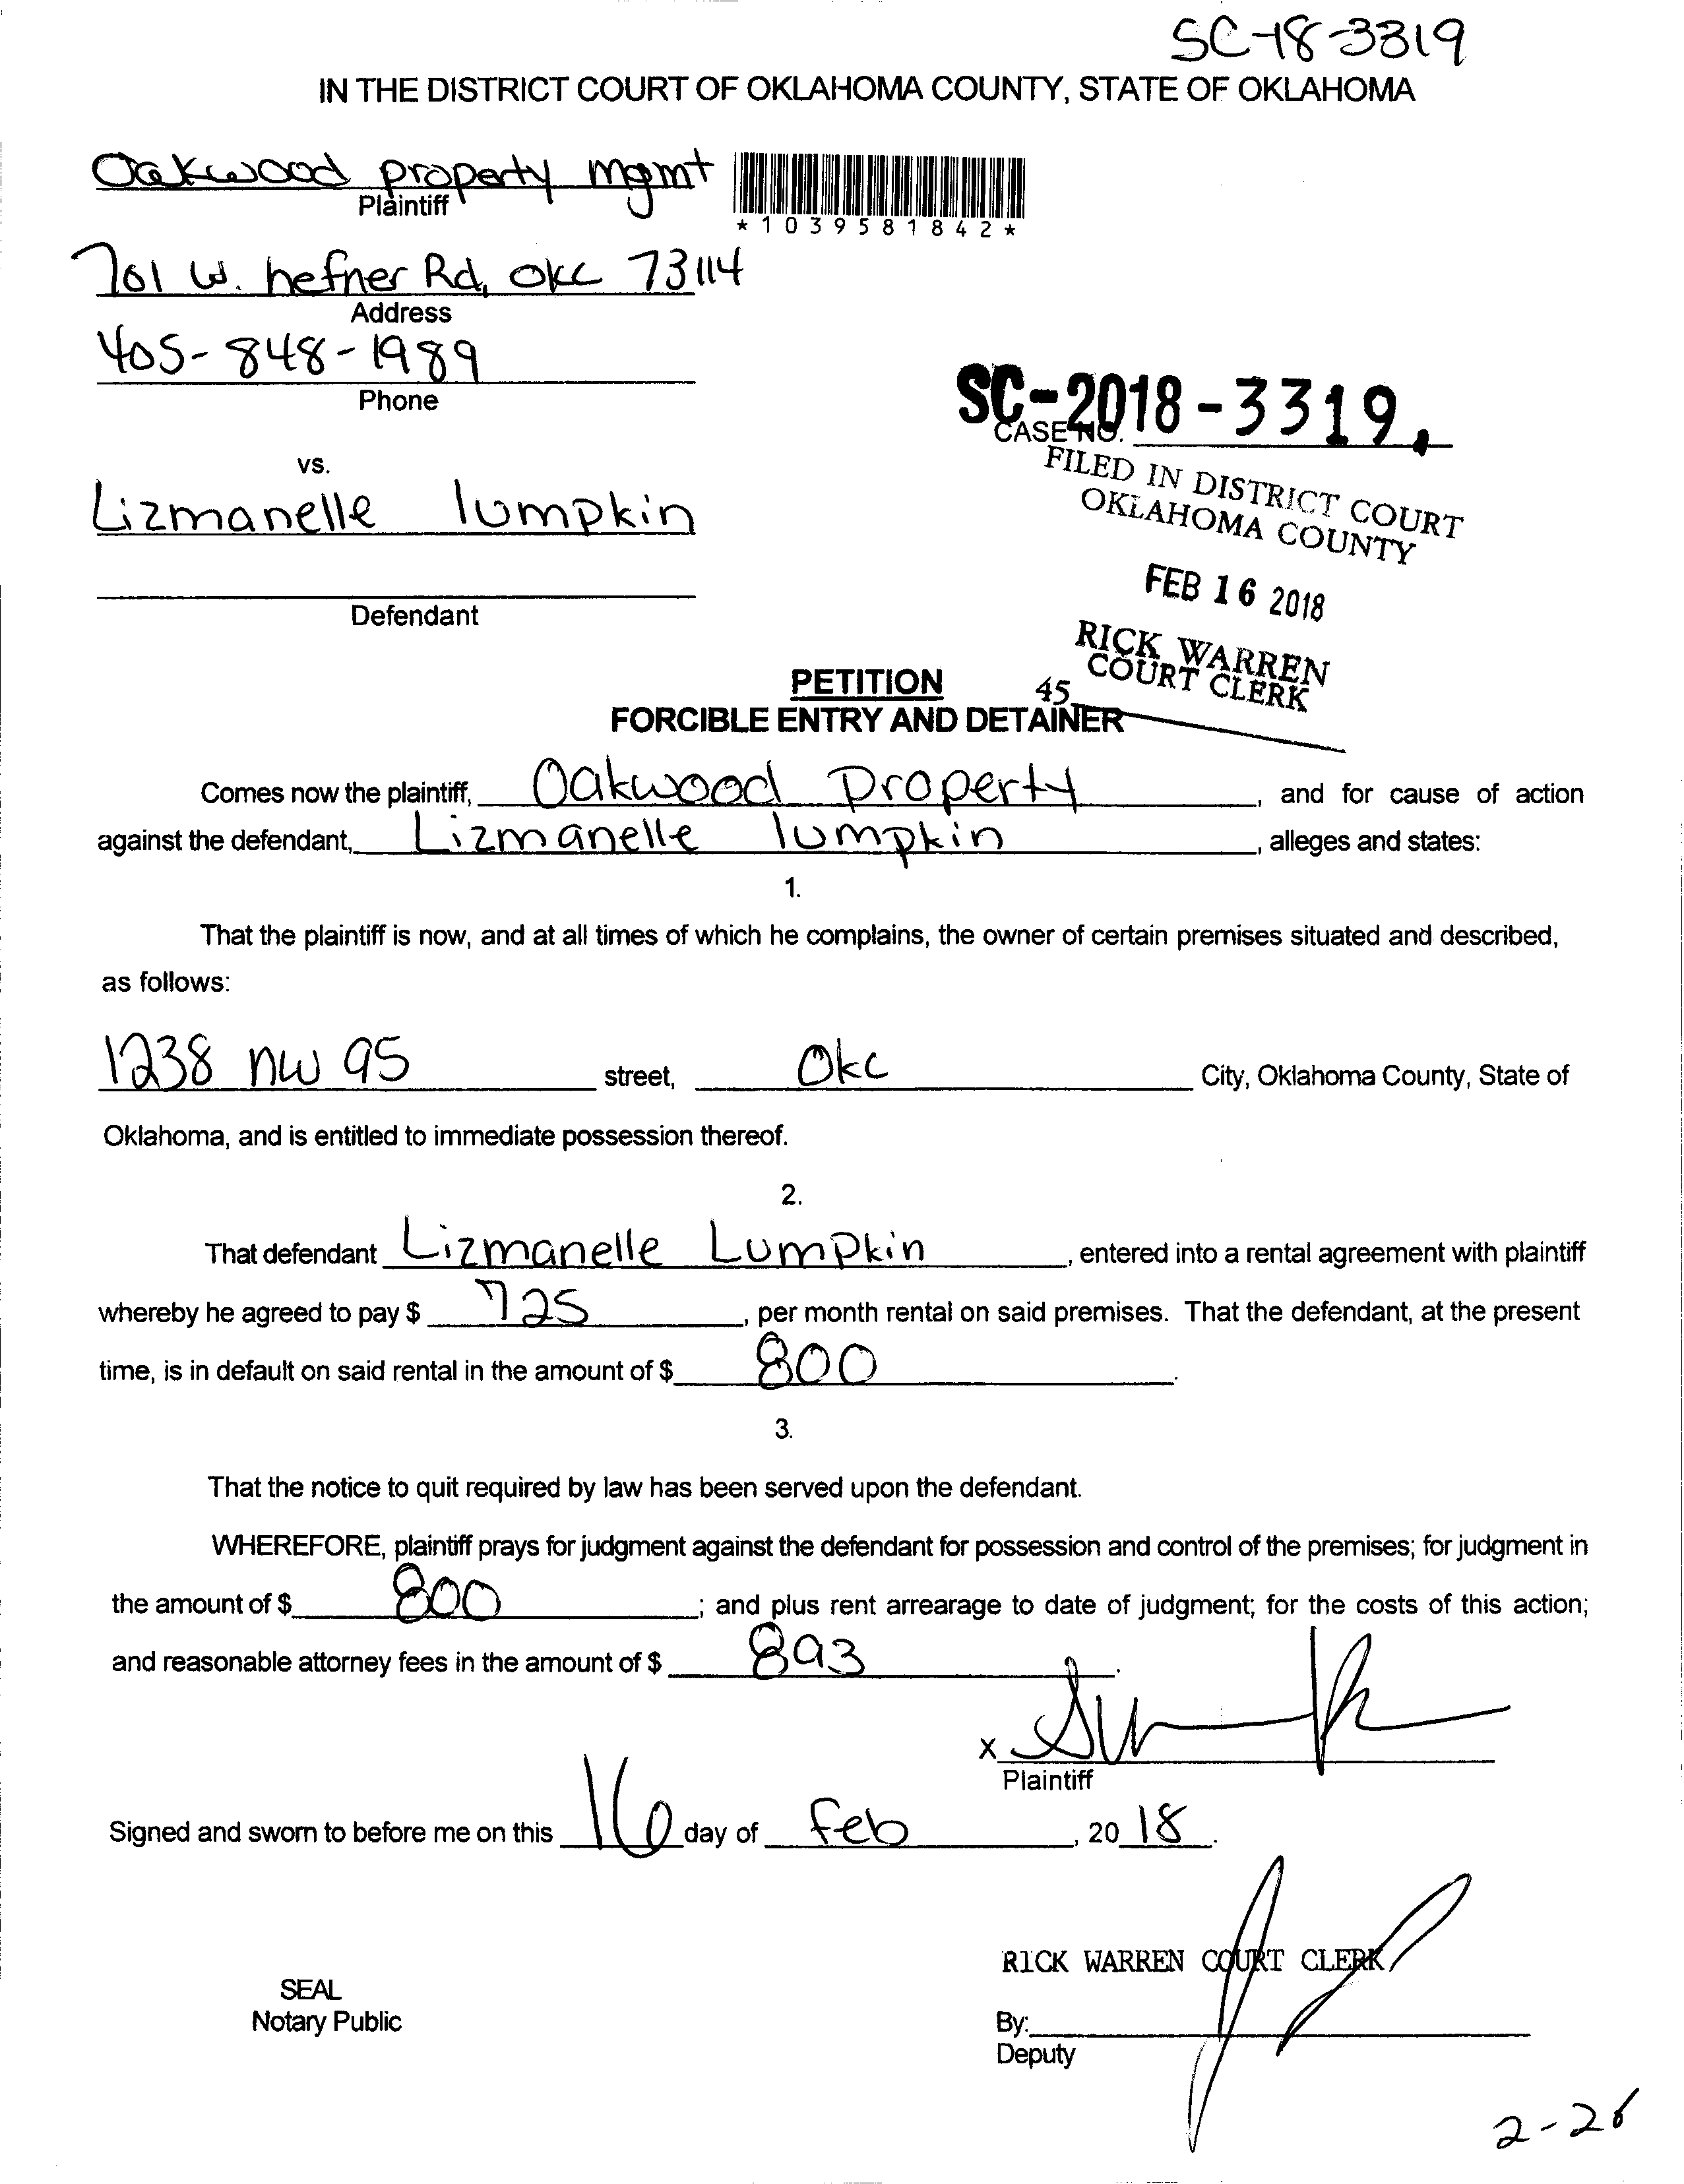 SC-18-3319
IN THE DISTRICT COURT OF OKLAHOMA COUNTY, STATE OF OKLAHOMA
Oakwood property mgmt
Plaintiff
*1039581842*
701 W. hefner Rd, OKC 73114
Address
405-848-1989
Phone
SC-2018-3319.
CASE NO.
FILED IN DISTRICT COURT
OKLAHOMA COUNTY
vs.
Lizmanelle lumpkin
FEB 16 2018
Defendant
RICK WARREN
COURT CLERK
45
PETITION
FORCIBLE ENTRY AND DETAINER
Comes now the plaintiff, Oakwood Property, and for cause of action
against the defendant, Lizmanelle lumpkin, alleges and states:
1.
That the plaintiff is now, and at all times of which he complains, the owner of certain premises situated and described,
as follows:
1238 nw 95 street, Okc City, Oklahoma County, State of
Oklahoma, and is entitled to immediate possession thereof.
2.
That defendant Lizmanelle Lumpkin, entered into a rental agreement with plaintiff
whereby he agreed to pay $ 725, per month rental on said premises. That the defendant, at the present
time, is in default on said rental in the amount of $ 800.
3.
That the notice to quit required by law has been served upon the defendant.
WHEREFORE, plaintiff prays for judgment against the defendant for possession and control of the premises; for judgment in
the amount of $ 800; and plus rent arrearage to date of judgment; for the costs of this action;
and reasonable attorney fees in the amount of $ 893.
X
Plaintiff
Signed and sworn to before me on this 16 day of Feb, 20 18.
RICK WARREN COURT CLERK
SEAL
Notary Public
By:
Deputy
2-26